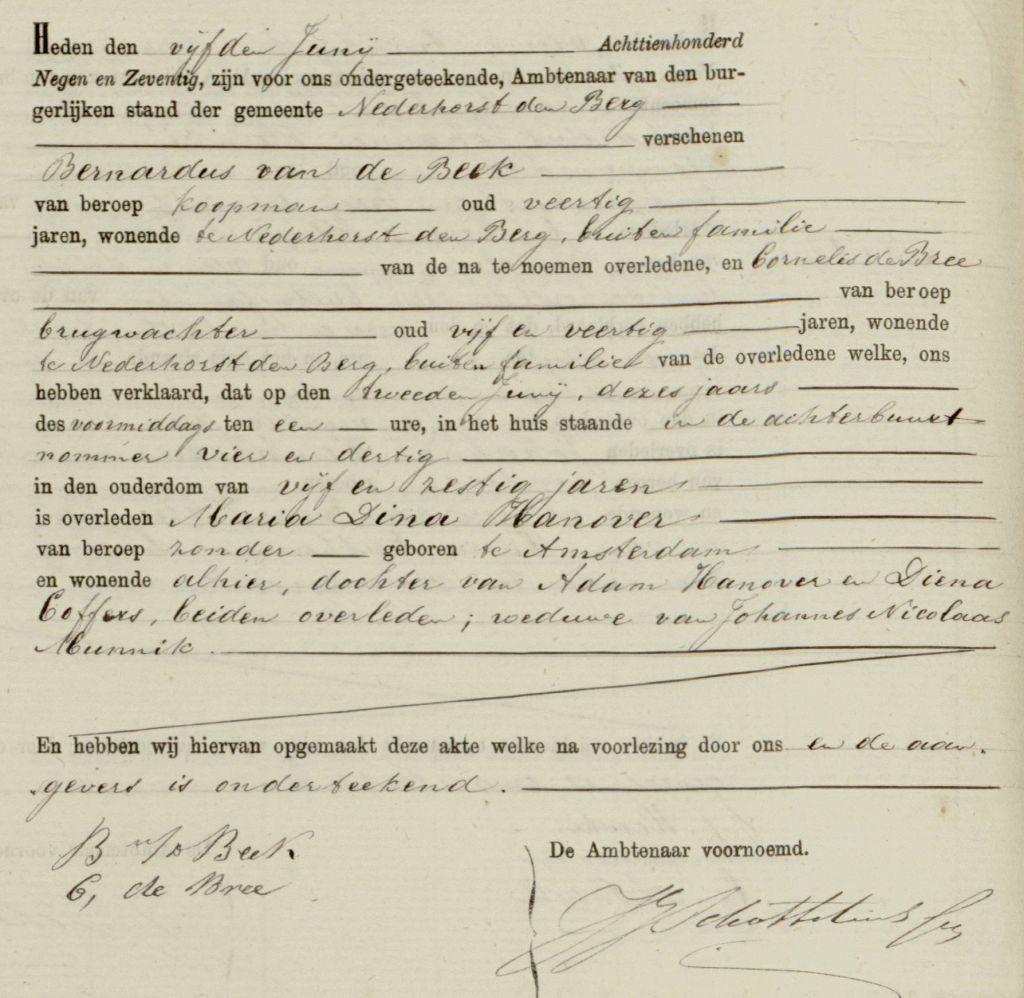 Heden den vijfden Junij Achttienhonderd
Negen en Zeventig, zijn voor ons ondergeteekende, Ambtenaar van den bur-
gerlijken stand der gemeente Nederhorst den Berg
verschenen
Bernardus van de Beek
van beroep koopman oud veertig
jaren, wonende te Nederhorst den Berg, buiten familie
van de na te noemen overledene, en Cornelis de Bree
van beroep
brugwachter oud vijf en veertig jaren, wonende
te Nederhorst den Berg, buiten familie van de overledene welke, ons
hebben verklaard, dat op den tweeden Junij, dezes jaars
des voormiddags ten een ure, in het huis staande in de achterbuurt
nommer vier en dertig
in den ouderdom van vijf en zestig jaren
is overleden Maria Dina Hanover
van beroep zonder geboren te Amsterdam
en wonende alhier, dochter van Adam Hanover en Diena
Coffers, beiden overleden; weduwe van Johannes Nicolaas
Munnik.
En hebben wij hiervan opgemaakt deze akte welke na voorlezing door ons en de aan-
gevers is onderteekend.
B v/d Beek
C, de Bree
De Ambtenaar voornoemd.